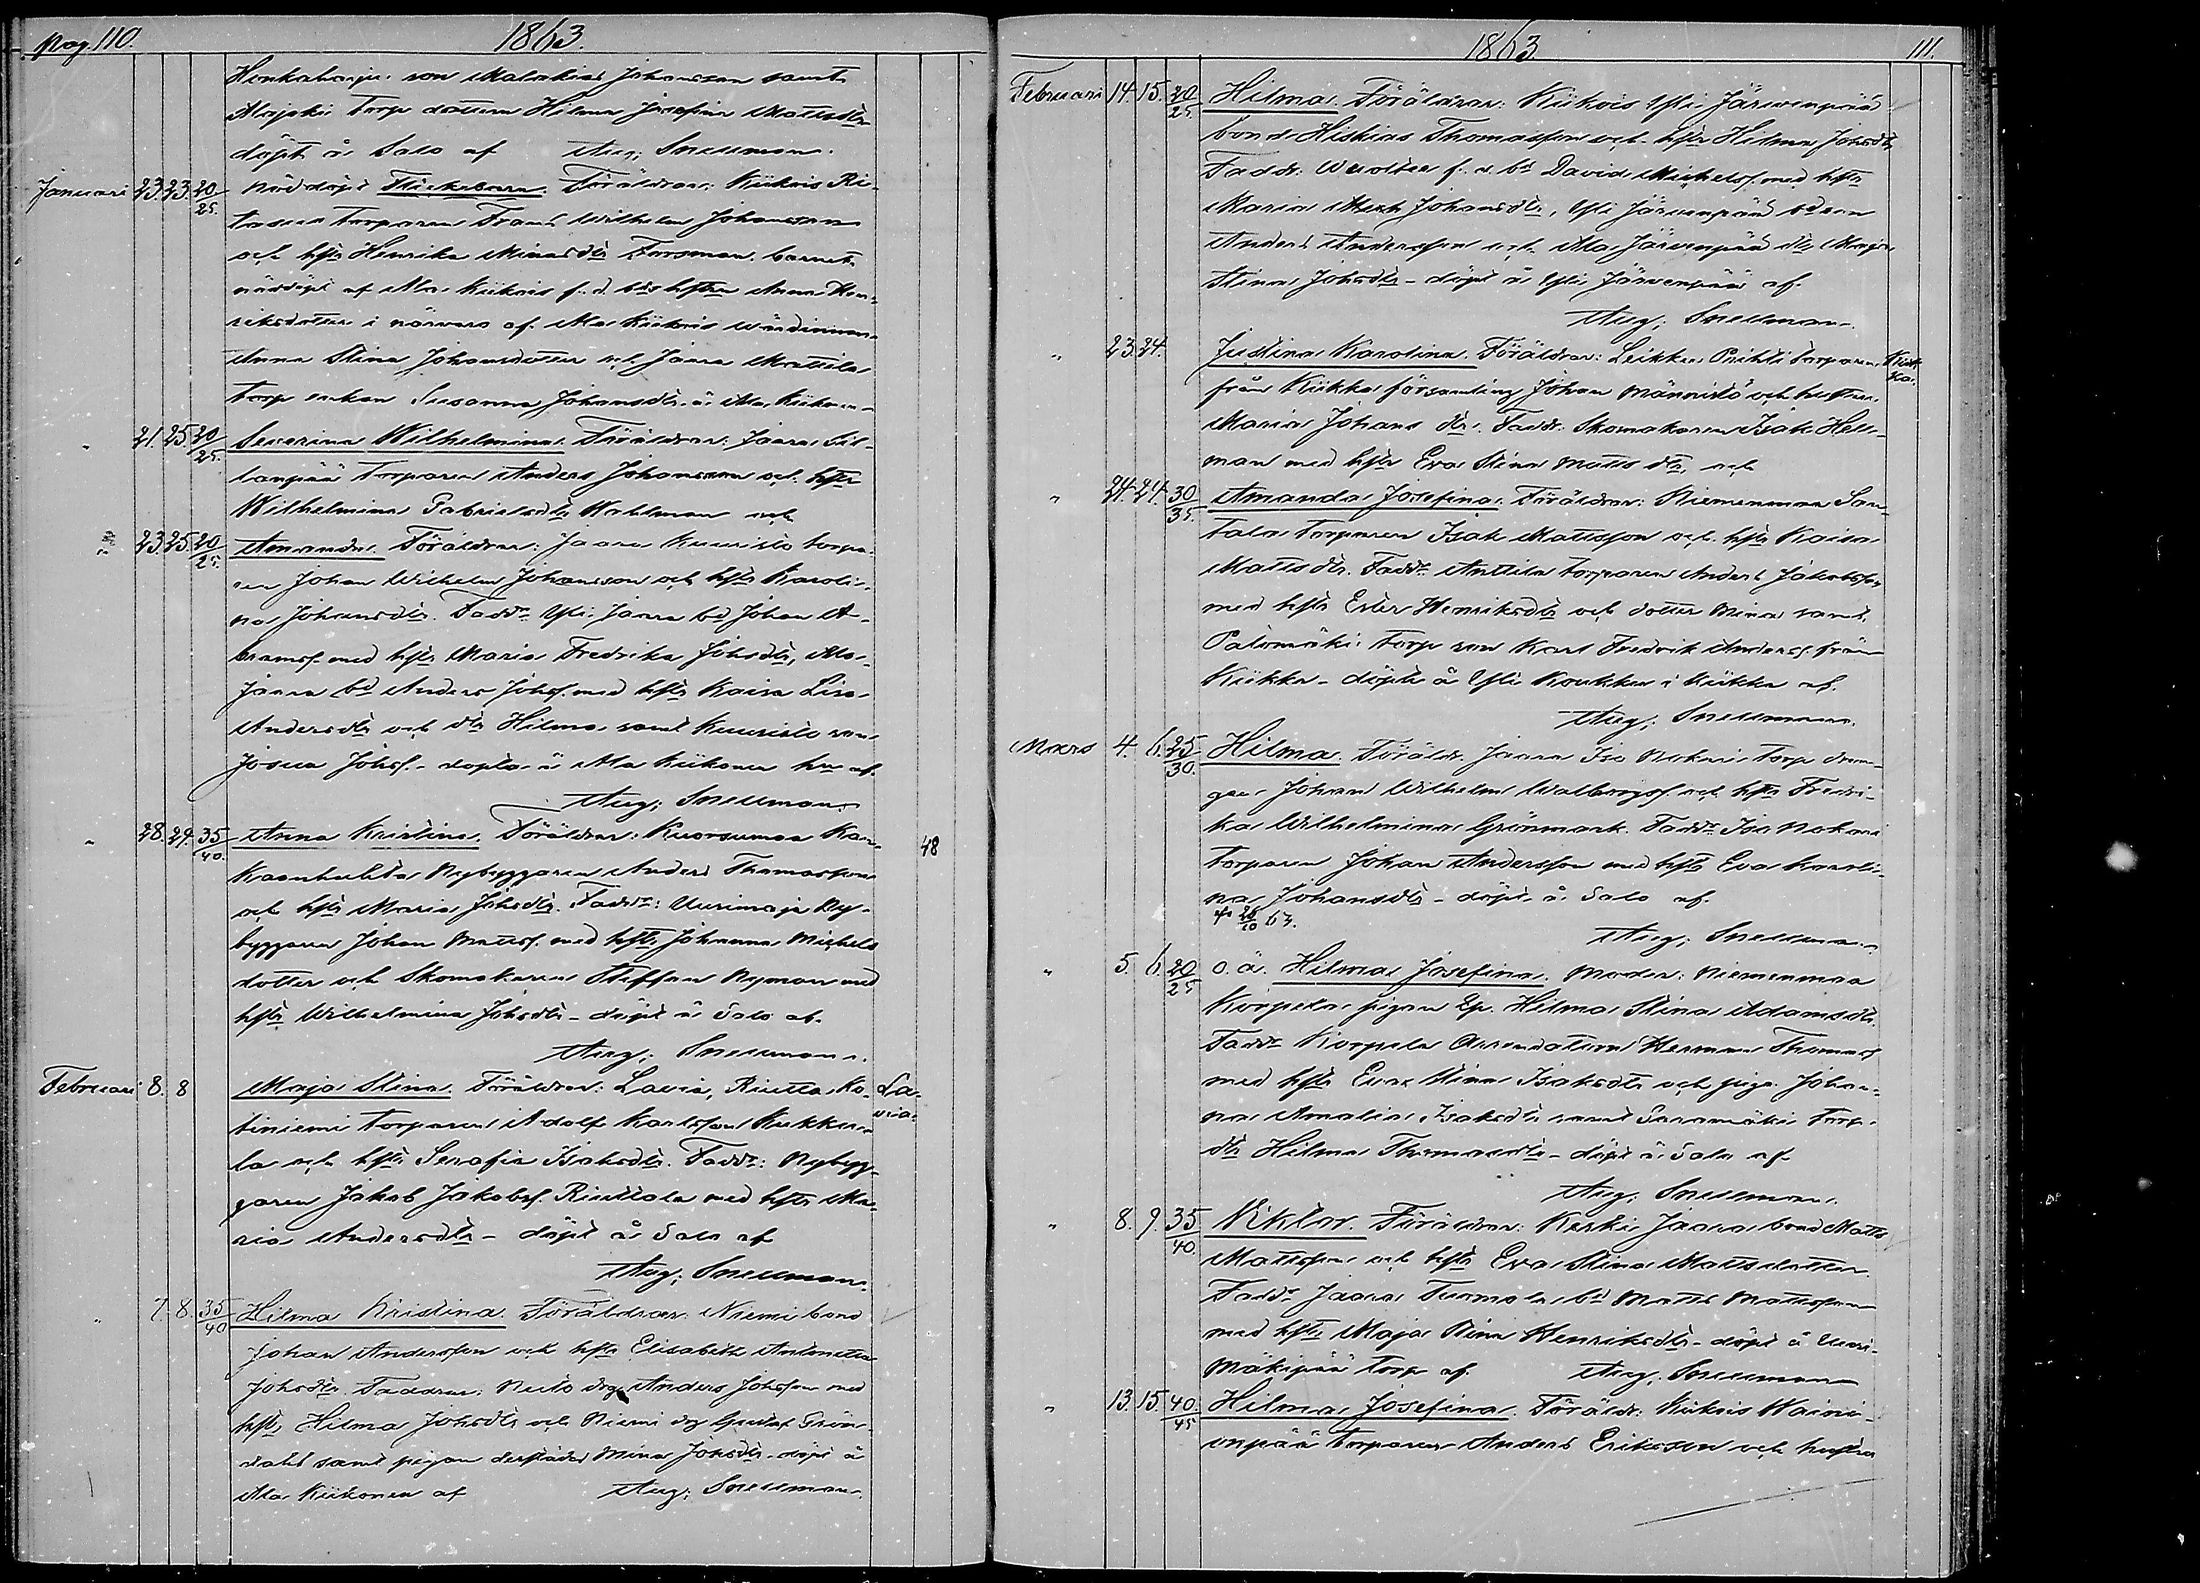 pag. 110.
1863.
Henkaharju son Malakias Johansson samt
Majaki Torp dottern Hilma Josefina Mattsdtr
döpt å Salo af Aug. Snellman.
Januari 23. 23. 20/25. Nöddöpt Flickebarn. Föräldrar: Kiikois Ri-
torparen Frans Wilhelm Johansson
och hstr Henrika Minasdtr Forsman. barnet
nöddöpt af Ala Kiikois f. d. bds hstrn Anna Hen-
riksdotter i närvaro af Ala Kiikois wärdinnan
Anna Stina Johansdotter och Jaara Mattila
torp enkan Susanna Johansdtr å Ala Kiikoin
" 21. 25. 20/25. Severina Wilhelmina. Föräldrar: Jaara Sil-
lanpää Torparen Anders Johansson och hstr
Wilhelmina Gabrielsdtr Wahlman och
" 23. 25. 20/25. Amanda. Föräldrar: Jaara Kuuristo torpa-
ren Johan Wilhelm Johansson och hstr Karoli-
na Johansdtr. Faddr Yli Jaara bd Johan A-
bramsf. med hstr Maria Fredrika Johsdtr, Ala-
Jaara bd Anders Johsf. med hstr Kaisa Lisa
Andersdtr och dtr Hilma samt Kuuristo son
Josua Johsf. - döpta å Ala Kiikonen hn af.
Aug. Snellman.
" 28. 29. 35/40. Anna Kristina. Föräldrar: Kuorsumaa Kan-
Kaanhuhta Nybyggaren Anders Thomasson
och hstr Maria Johsdtr. Faddr: Uurimaja Ny-
byggaren Johan Mattsf. med hstr Johanna Michels
dotter och Skomakaren Steffan Nyman med
hstr Wilhelmina Johsdtr - döpt å Salo af.
48
Aug. Snellman.
Februari 8. 8 Maja Stina. Föräldrar: Lavia, Riutta, Ko- La-
tiniemi torparen Adolf Karlsson Kukku- via.
la och hstr Serafia Isaksdtr. Faddr: Nybyg-
garen Jakob Jakobsf. Riuttala med hstr Ma-
ria Andersdtr - döpt å Salo af
Aug. Snellman.
" 7. 8. 35/40 Hilma Kristina. Föräldrar: Niemi bond
Johan Andersson och hstr Elisabeth Antonetta
Johsdtr. Faddrar: Neito drg Anders Johsson med
hstr Hilma Johsdtr och Niemi drg Gustaf Grön-
dahl samt pigan derstädes Mina Johsdtr. döpt å
Ala Kiikonen af Aug. Snellman.
1863.
111.
Februari 14. 15. 20/25. Hilma. Föräldrar: Kiikois Yli Järvenpää
bond Hiskias Thomasson och hstr Hilma Johsdtr,
Faddr: f. d. bd David Michelsf. med hstr
Maria Johansdtr, Yli Järvenpää bdson
Anders Andersson och Ala Järvenpää dtr Maja
Stina Johsdtr - döpt å Yli Järvenpää af.
Aug. Snellman.
" 23. 24. Justina Karolina. Föräldrar: Leikku Prihti torparen Kiik-
från Kiikka församling Johan Männistö och hustrun ka.
Maria Johansdtr. Faddr: Skomakaren Isak Hell-
man med hstr Eva Stina Mattsdtr, och
" 24. 24. 30/35. Amanda Josefina. Föräldrar: Niemenmaa San-
tala torparen Isak Mattsson och hstr Kaisa
Mattsdtr. Faddr Anttila torparen Anders Jakobsson
med hstr Ester Henriksdtr och dotter Mina samt
Palomäki Torp son Karl Fredrik Andersf. från
Kiikka - döpte å Yli Koukka i Kiikka af.
Aug. Snellman.
Mars 4. 6. 25/30. Hilma. Föräldr. Jaara Iso Nokari Torp dren-
gen Johan Wilhelm Walborgsf. och hstr Fredri-
ka Wilhelmina Grönmark. Faddr Iso Nokari
torparen Johan Andersson med hstr Eva Karoli-
na Johansdtr - döpt å Salo af.
28/10 63.
Aug. Snellman.
" 5. 6. 20/25 o. ä. Hilma Josefina. Moder: Niemenmaa
Korpela pigan Ep. Hilma Stina Adamsdtr.
Faddr Korpela Arrendatorn Herman Thomasf.
med hstr Eva Stina Isaksdtr och piga Johan-
na Amalia Isaksdtr samt Saramäki Torp-
dtr Hilma Thomasdtr - döpt å Salo af
Aug. Snellman.
" 8. 9. 35/40. Viktor. Föräldrar: Keski Jaara bond Matts
Mattsson och hstr Eva Stina Mattsdotter.
Faddr Jaara Tuomola bd Matts Mattsson
med hstr Maja Stina Henriksdtr - döpt å Uuri-
mäkipää torp af. Aug. Snellman
" 13. 15. 40/45 Hilma Josefina. Föräldr: Kiikois Waini-
onpää torparen Anders Eriksson och hustru